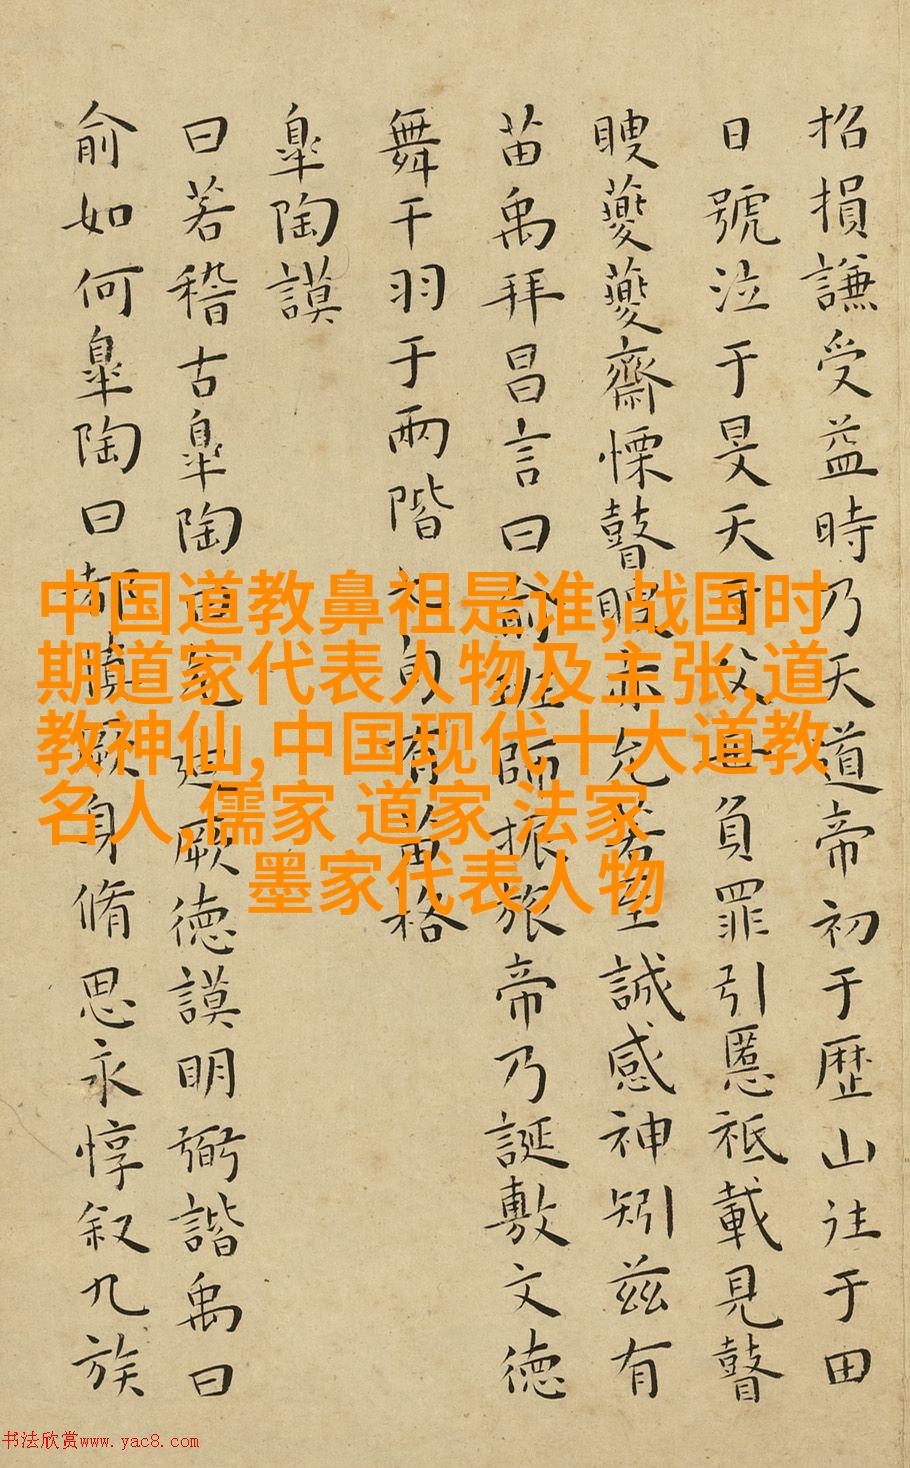 招損謙受益時乃天道帝初于歷山往于田
日號泣于旻天于父母負罪引慝祗載見瞽
瞍夔夔齋慄瞽瞍亦允若至誠感神矧兹有
苗禹拜昌言曰俞班師振旅帝乃誕敷文德
舞干羽于兩階七旬有苗格
臯陶謨
曰若稽古臯陶曰允迪厥德謨明弼諧禹曰
俞如何臯陶曰都慎厥身脩思永惇叙九族
中国道教鼻祖是谁,战国时
期道家代表人物及主张,道
教神仙,中国现代十大道教
名人,儒家 道家 法家
墨家代表人物
书法欣赏www.yac8.com